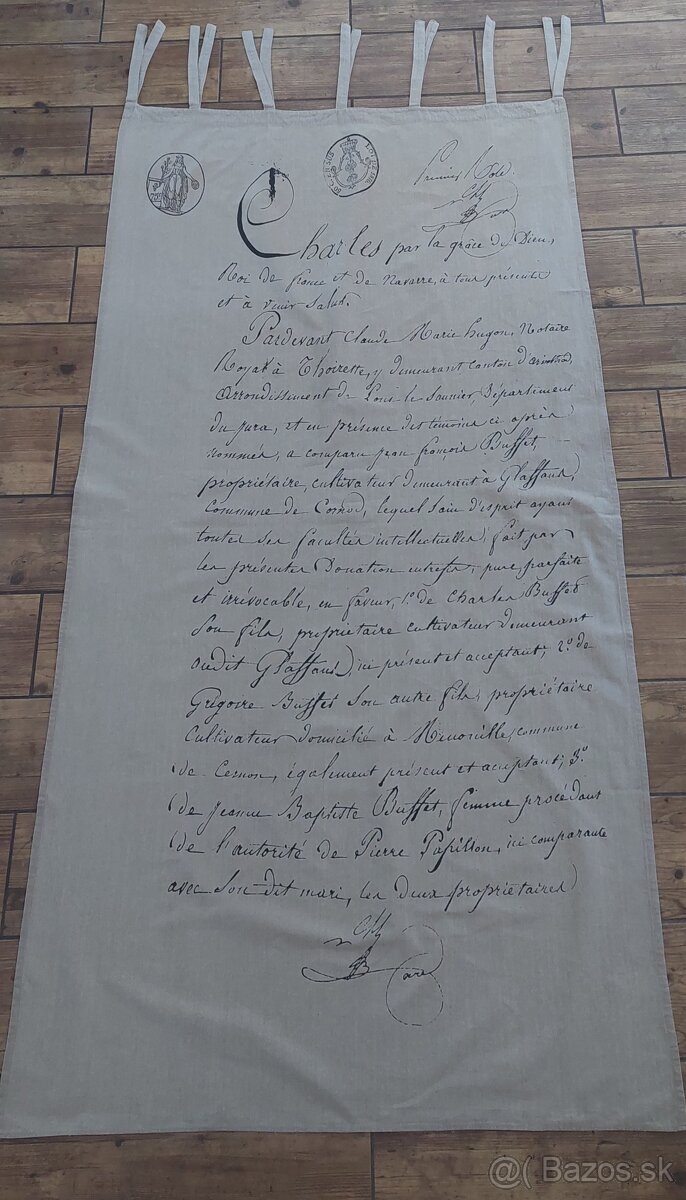 Premier Role
Charles par la grâce de Dieu,
Roi de france et de Navarre, à tous présents
et à venir Salut.
Pardevant Claude Marie hugon, Notaire
Royal à Thoirette, y demeurant canton d'arinthod,
arrondissement de Lons-le Saunier, Département
du jura, et en présence des témoins ci après
nommés, a comparu jean françois Buffet,
propriétaire, cultivateur demeurant à Glaffans,
Commune de Cornod, lequel sain d'esprit ayant
toutes ses facultés intellectuelles, fait par
les présentes Donation entrefs, pure, parfaite
et irrévocable, en faveur, 1.° de Charles Buffet
son fils, propriétaire cultivateur demeurant
audit Glaffans) ici présent et acceptant; 2.° de
Grégoire Buffet son autre fils, propriétaire
cultivateur domicilié à Menouille, commune
de Cernon, également présent et acceptant; 3.°
de jeanne Baptiste Buffet, femme procédant
de l'autorité de Pierre Papillon, ici comparante
avec son dit mari, les deux propriétaires)
@( Bazos.sk